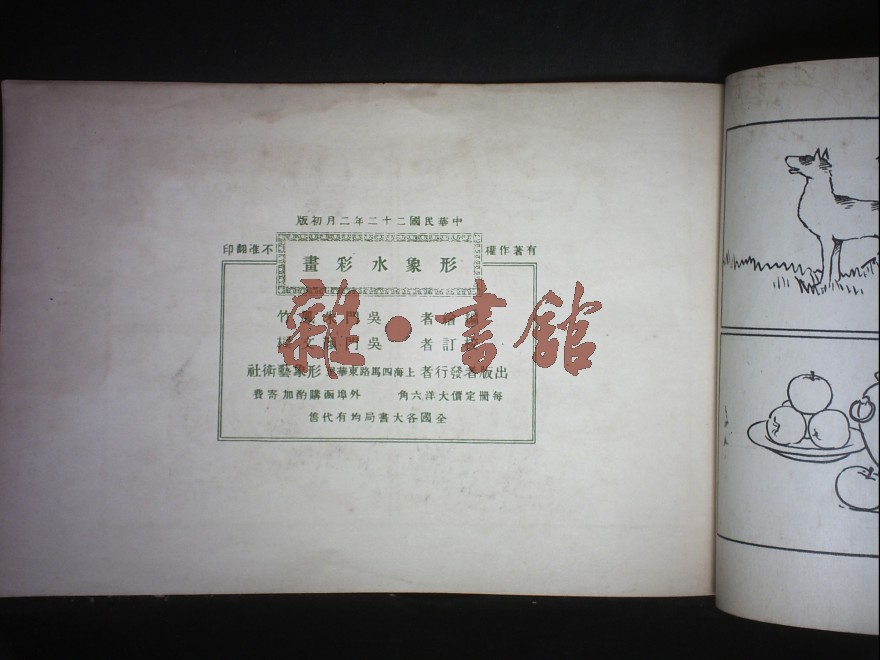 中華民國二十二年二月初版
有著作權 不准翻印
形象水彩畫
繪者 吳門朱竹
訂者 吳門文
出版者發行者 上海四馬路東華 形象藝術社
每冊定價大洋六角 外埠函購酌加寄費
全國各大書局均有代售
雜·書館